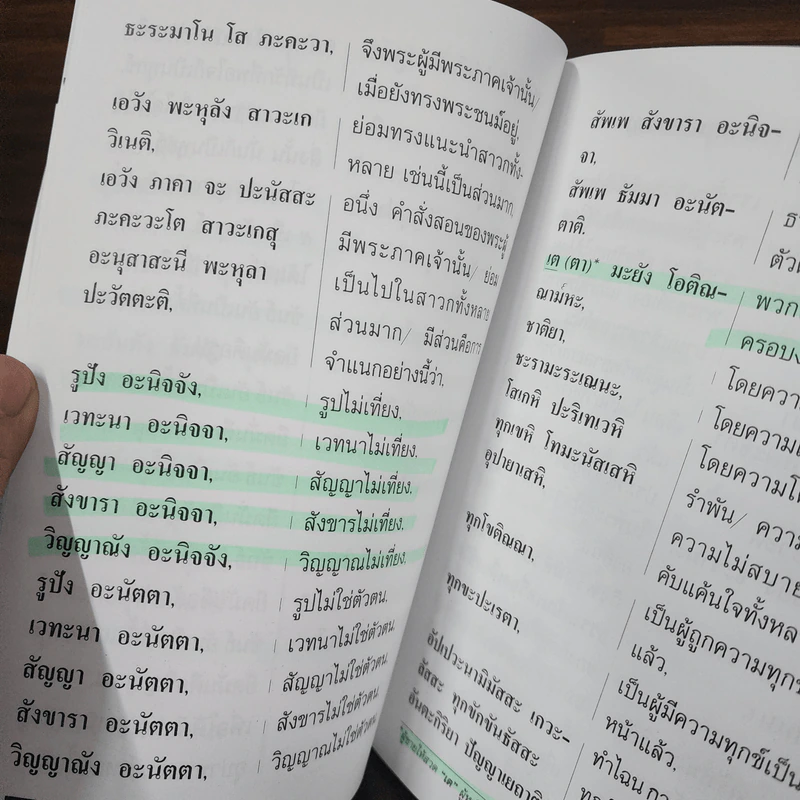 ธะระมาโน โส ภะคะวา,
จึงพระผู้มีพระภาคเจ้านั้น/
เมื่อยังทรงพระชนม์อยู่,
เอวัง พะหุลัง สาวะเก
วิเนติ,
ย่อมทรงแนะนำสาวกทั้ง-
หลาย เช่นนี้เป็นส่วนมาก,
เอวัง ภาคา จะ ปะนัสสะ
ภะคะวะโต สาวะเกสุ
อะนุสาสะนี พะหุลา
ปะวัตตะติ,
อนึ่ง คำสั่งสอนของพระผู้
มีพระภาคเจ้านั้น/ ย่อม
เป็นไปในสาวกทั้งหลาย
ส่วนมาก/ มีส่วนคือการ
จำแนกอย่างนี้ว่า,
รูปัง อะนิจจัง, รูปไม่เที่ยง,
เวทะนา อะนิจจา, เวทนาไม่เที่ยง,
สัญญา อะนิจจา, สัญญาไม่เที่ยง,
สังขารา อะนิจจา, สังขารไม่เที่ยง,
วิญญาณัง อะนิจจัง, วิญญาณไม่เที่ยง,
รูปัง อะนัตตา, รูปไม่ใช่ตัวตน,
เวทะนา อะนัตตา, เวทนาไม่ใช่ตัวตน,
สัญญา อะนัตตา, สัญญาไม่ใช่ตัวตน,
สังขารา อะนัตตา, สังขารไม่ใช่ตัวตน,
วิญญาณัง อะนัตตา, วิญญาณไม่ใช่ตัวตน,
สัพเพ สังขารา อะนิจ-
จา,
สัพเพ ธัมมา อะนัต-
ตาติ.
เต (ตา)* มะยัง โอติณ-
ณาม๎หะ,
พวก
ครอบง
ชาติยา,
โดยควา
ชะรามะระเณนะ,
โดยความแ
โสเกหิ ปะริเทเวหิ
ทุกเขหิ โทมะนัสเสหิ
อุปายาเสหิ,
โดยความโ
รำพัน/ ความ
ความไม่สบาย
คับแค้นใจทั้งหล
ทุกโขติณณา,
เป็นผู้ถูกความทุกข
แล้ว,
ทุกขะปะเรตา,
เป็นผู้มีความทุกข์เป็น
หน้าแล้ว,
อัปเปวะนามิมัสสะ เกวะ-
ลัสสะ ทุกขักขันธัสสะ
อันตะกิริยา ปัญญาเยถาติ
ทำไฉน